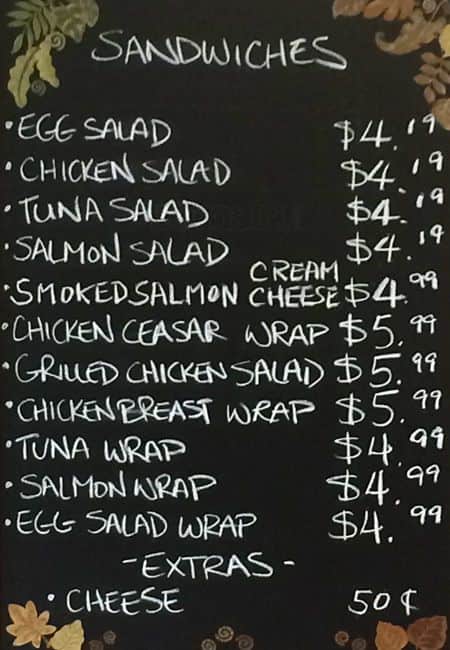 SANDWICHES
• EGG SALAD $4.19
• CHICKEN SALAD $4.19
• TUNA SALAD $4.19
• SALMON SALAD $4.19
• SMOKED SALMON CREAM CHEESE $4.99
• CHICKEN CEASAR WRAP $5.99
• GRILLED CHICKEN SALAD $5.99
• CHICKEN BREAST WRAP $5.99
• TUNA WRAP $4.99
• SALMON WRAP $4.99
• EGG SALAD WRAP $4.99
- EXTRAS -
• CHEESE 50¢